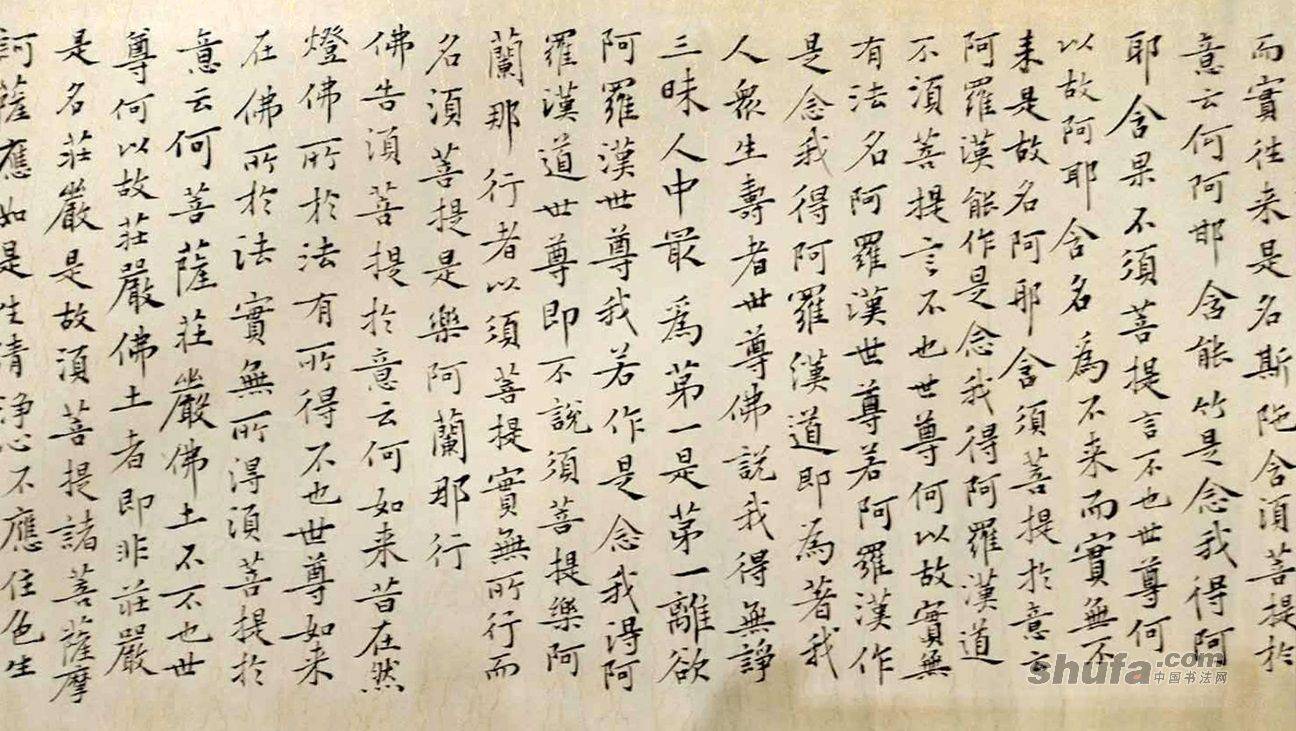 而實往来是名斯陁含須菩提於
意云何阿那含能竹是念我得阿
耶含果不須菩提言不也世尊何
以故阿耶含名為不来而實無不
来是故名阿耶含須菩提於意云
阿羅漢能作是念我得阿羅漢道
不須菩提言不也世尊何以故實無
有法名阿羅漢世尊若阿羅漢作
是念我得阿羅漢道即為著我
人衆生壽者世尊佛説我得無諍
三昧人中最為苐一是苐一離欲
阿羅漢世尊我若作是念我得阿
羅漢道世尊即不説須菩提樂阿
蘭那行者以須菩提實無所行而
名須菩提是樂阿蘭耶行
佛告須菩提於意云何如来昔在然
燈佛所於法有所得不也世尊如来
在佛所於法實無所得須菩提於
意云何菩薩莊嚴佛土不不也世
尊何以故莊嚴佛土者即非莊嚴
是名莊嚴是故須菩提諸菩薩摩
訶薩應如是生清淨心不應住色生
shufa.com
中国书法网